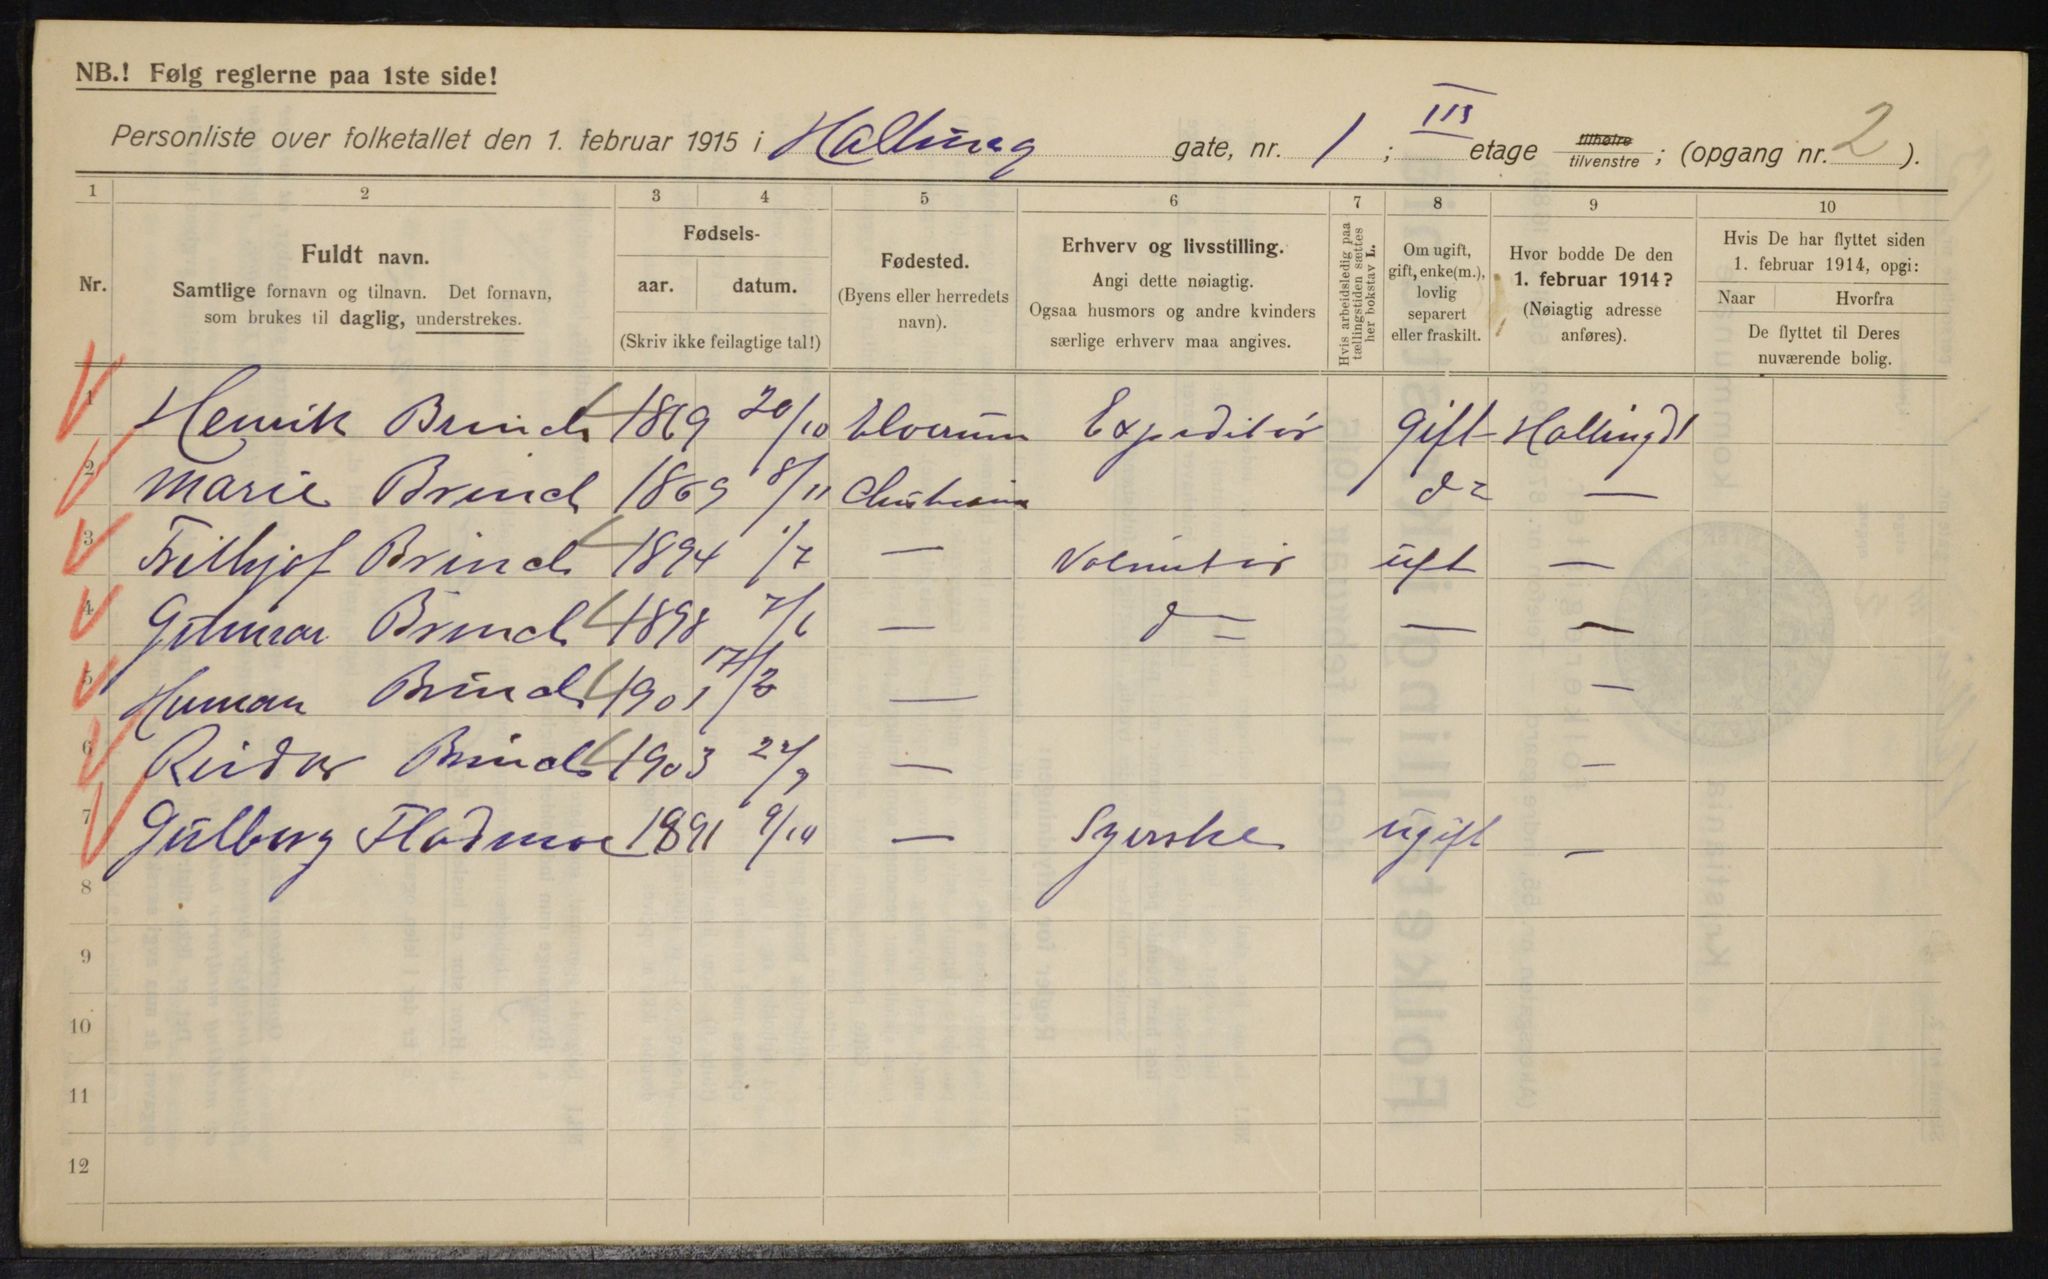 NB.! Følg reglerne paa 1ste side!
Personliste over folketallet den 1. februar 1915 i Halling gate, nr. 1; III etage tilhøire tilvenstre; (opgang nr. 2).
1 2 3 4 5 6 7 8 9 10
Nr. Fuldt navn. Samtlige fornavn og tilnavn. Det fornavn, som brukes til daglig, understrekes.
Fødsels- aar. datum. (Skriv ikke feilagtige tal!)
Fødested. (Byens eller herredets navn).
Erhverv og livsstilling. Angi dette nøiagtig. Ogsaa husmors og andre kvinders særlige erhverv maa angives.
Hvis arbeidsledig paa tællingstiden sættes her bokstav L.
Om ugift, gift, enke(m.), lovlig separert eller fraskilt.
Hvor bodde De den 1. februar 1914? (Nøiagtig adresse anføres).
Hvis De har flyttet siden 1. februar 1914, opgi: Naar Hvorfra De flyttet til Deres nuværende bolig.
1 Henrik Brinch 1869 20/10 Elverum Expeditør Gift Hallingd 1
2 Marie Brinch 1869 8/11 Christiania do —
3 Frithjof Brinch 1894 1/7 — Volontør ugt —
4 Brinch 1898 7/6 — do — —
5 Herman Brinch 1901 17/2 — —
6 Reidar Brinch 1903 22/9 — —
7 Gulborg Flodmoe 1891 9/10 — Syerske ugift —
8
9
10
11
12